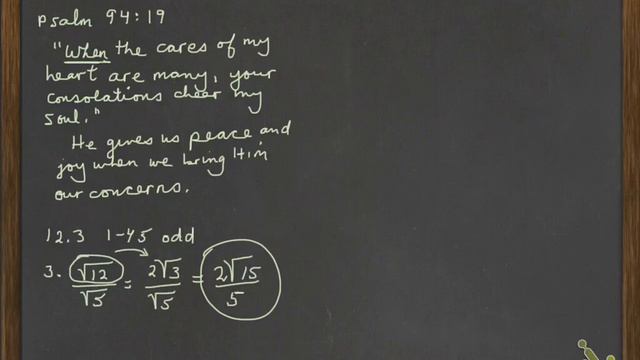 Psalm 94:19
"When the cares of my
heart are many, your
consolations cheer my
soul."
He gives us peace and
joy when we bring Him
our concerns.
12.3 1-45 odd
3. √12/√5 = 2√3/√5 = 2√15/5